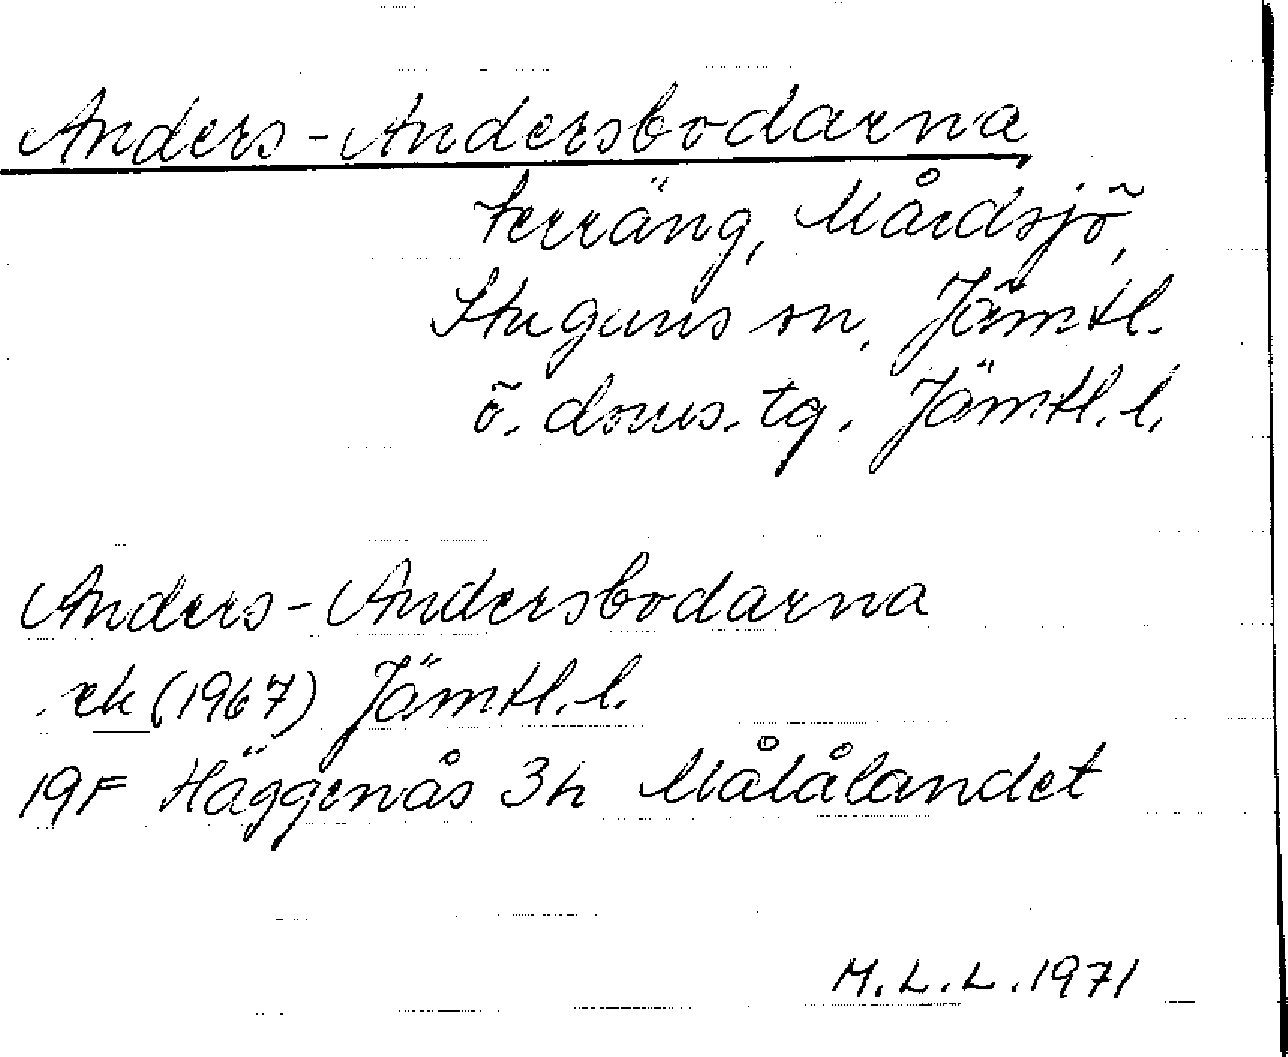 Anders-Andersbodarna,
terräng, Mårdsjö,
Stuguns sn, Jämtl.
ö. doms. tg. Jämtl. l.
Anders-Andersbodarna
rk (1967) Jämtl. l.
19F Häggenås 3h Målålandet
M.L.L. 1971